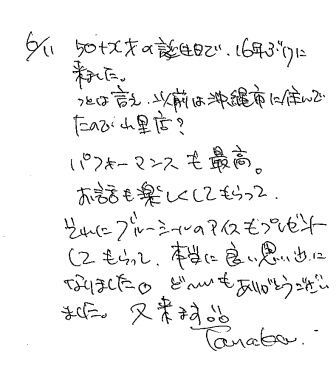 6/11 50+X才の誕生日で、16年ぶりに
来ました。
とは言え、以前は沖縄市に住んで
たので山里店?
パフォーマンスも最高。
お話も楽しくしてもらって、
それにブルーシールのアイスもプレゼント
してもらって、本当に良い思い出に
なりました。どーもありがとうござい
ました。又来ます
Tanaka.